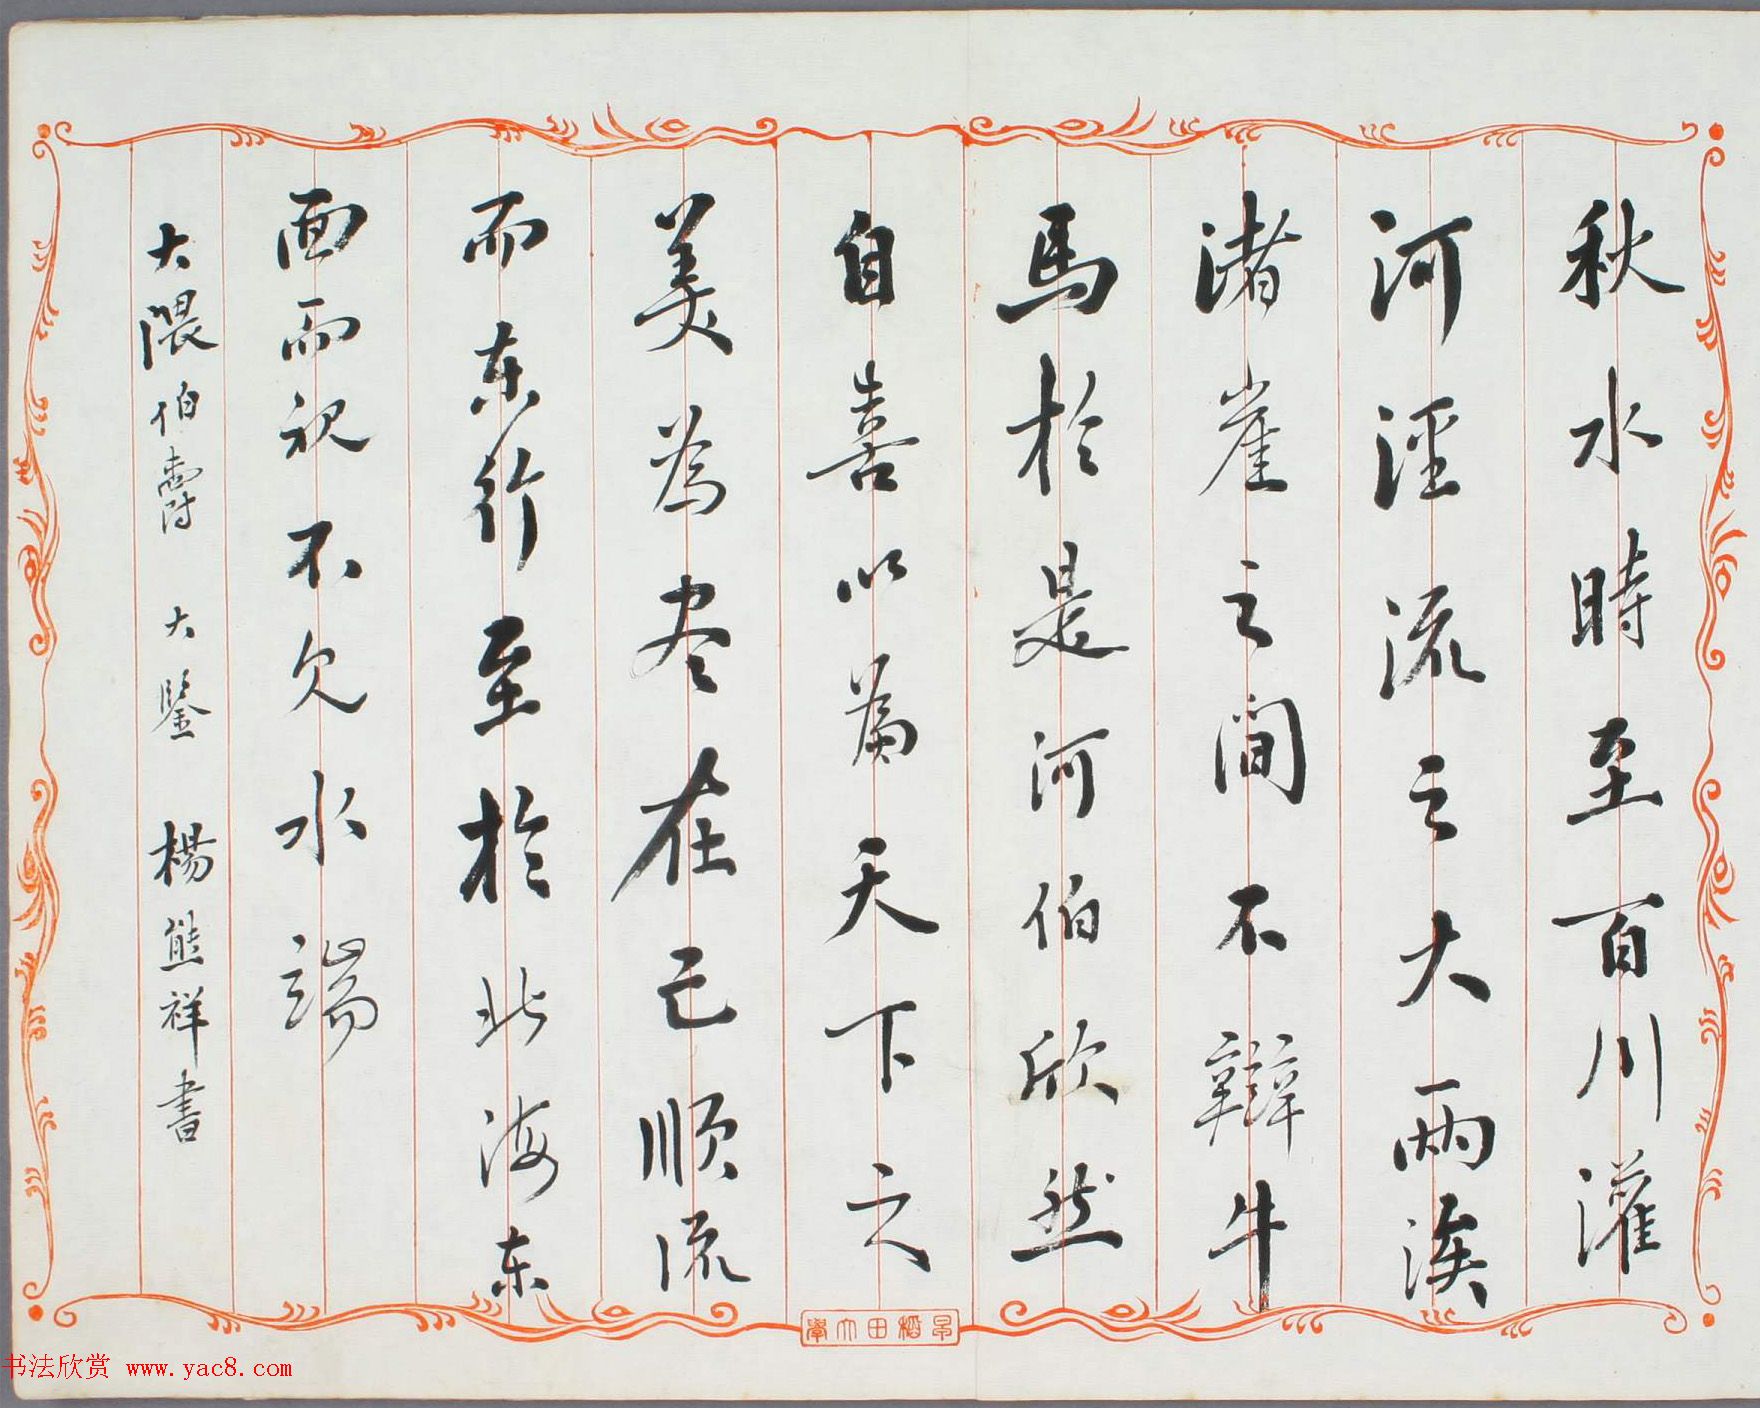 秋水時至百川灌
河涇流之大兩涘
渚崖之間不辯牛
馬於是河伯欣然
自喜以為天下之
美為尽在己順流
而东行至於北海东
面而視不欠水端
大隈伯爵 大鑒 楊熊祥書
早稻田大學
书法欣赏 www.yac8.com